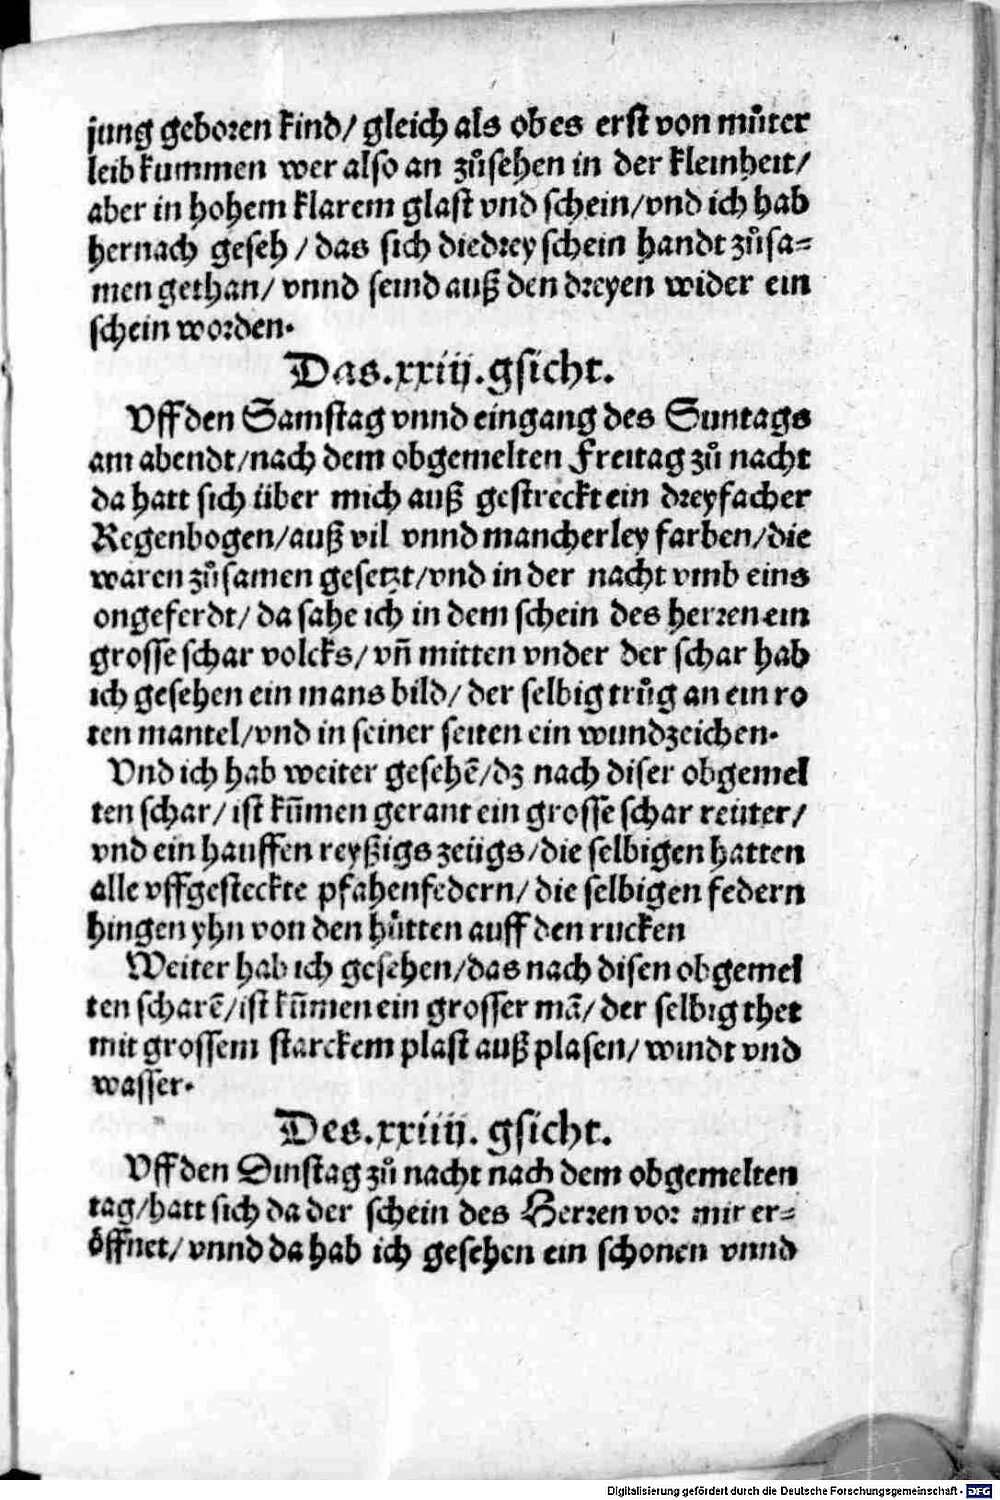 jung geboren kind/ gleich als ob es erst von můter
leib kummen wer also an zůsehen in der kleinheit/
aber in hohem klarem glast vnd schein/vnd ich hab
hernach geseh /das sich die drey schein handt zůsa=
men gethan/ vnnd seind auß den dreyen wider ein
schein worden.
Das.xxiij.gsicht.
Vff den Samstag vnnd eingang des Suntags
am abendt/nach dem obgemelten Freitag zů nacht
da hatt sich über mich auß gestreckt ein dreyfacher
Regenbogen/auß vil vnnd mancherley farben/die
waren zůsamen gesetzt/vnd in der nacht vmb eins
ongeferdt/ da sahe ich in dem schein des herren ein
grosse schar volcks/ vñ mitten vnder der schar hab
ich gesehen ein mans bild/ der selbig trůg an ein ro
ten mantel/vnd in seiner seiten ein wundzeichen.
Vnd ich hab weiter gesehẽ/dz nach diser obgemel
ten schar/ ist kum̃en gerant ein grosse schar reüter/
vnd ein hauffen reyßigs zeügs/die selbigen hatten
alle vffgesteckte pfahenfedern/ die selbigen federn
hingen yhn von den hůtten auff den rucken
Weiter hab ich gesehen/das nach disen obgemel
ten scharẽ/ist kum̃en ein grosser mã/ der selbig thet
mit grossem starckem plast auß plasen/ windt vnd
wasser.
Des.xxiiij. gsicht.
Vff den Dinstag zů nacht nach dem obgemelten
tag/hatt sich da der schein des Herren vor mir er=
öffnet/ vnnd da hab ich gesehen ein schonen vnnd
Digitalisierung gefördert durch die Deutsche Forschungsgemeinschaft - DFG